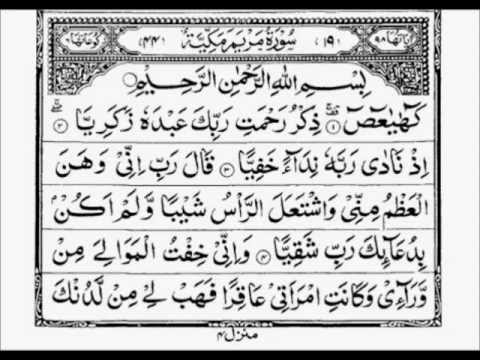 اٰیاتها ٩٨ (١٩) سُوْرَةُ مَرْيَمَ مَكِّيَّةٌ (٤٤) رکوعاتها ٦
بِسْمِ اللّٰهِ الرَّحْمٰنِ الرَّحِيْمِ
كٓهٰيٰعٓصٓ ۚ‏﴿۱﴾ ذِكْرُ رَحْمَتِ رَبِّكَ عَبْدَهٗ زَكَرِيَّا ۖۚ‏﴿۲﴾
اِذْ نَادٰى رَبَّهٗ نِدَآءً خَفِيًّا ﴿۳﴾ قَالَ رَبِّ اِنِّيْ وَهَنَ
الْعَظْمُ مِنِّيْ وَاشْتَعَلَ الرَّاْسُ شَيْبًا وَّلَمْ اَكُنْۢ
بِدُعَآئِكَ رَبِّ شَقِيًّا ﴿۴﴾ وَاِنِّيْ خِفْتُ الْمَوَالِيَ مِنْ
وَّرَآءِيْ وَكَانَتِ امْرَاَتِيْ عَاقِرًا فَهَبْ لِيْ مِنْ لَّدُنْكَ
منزل ۴